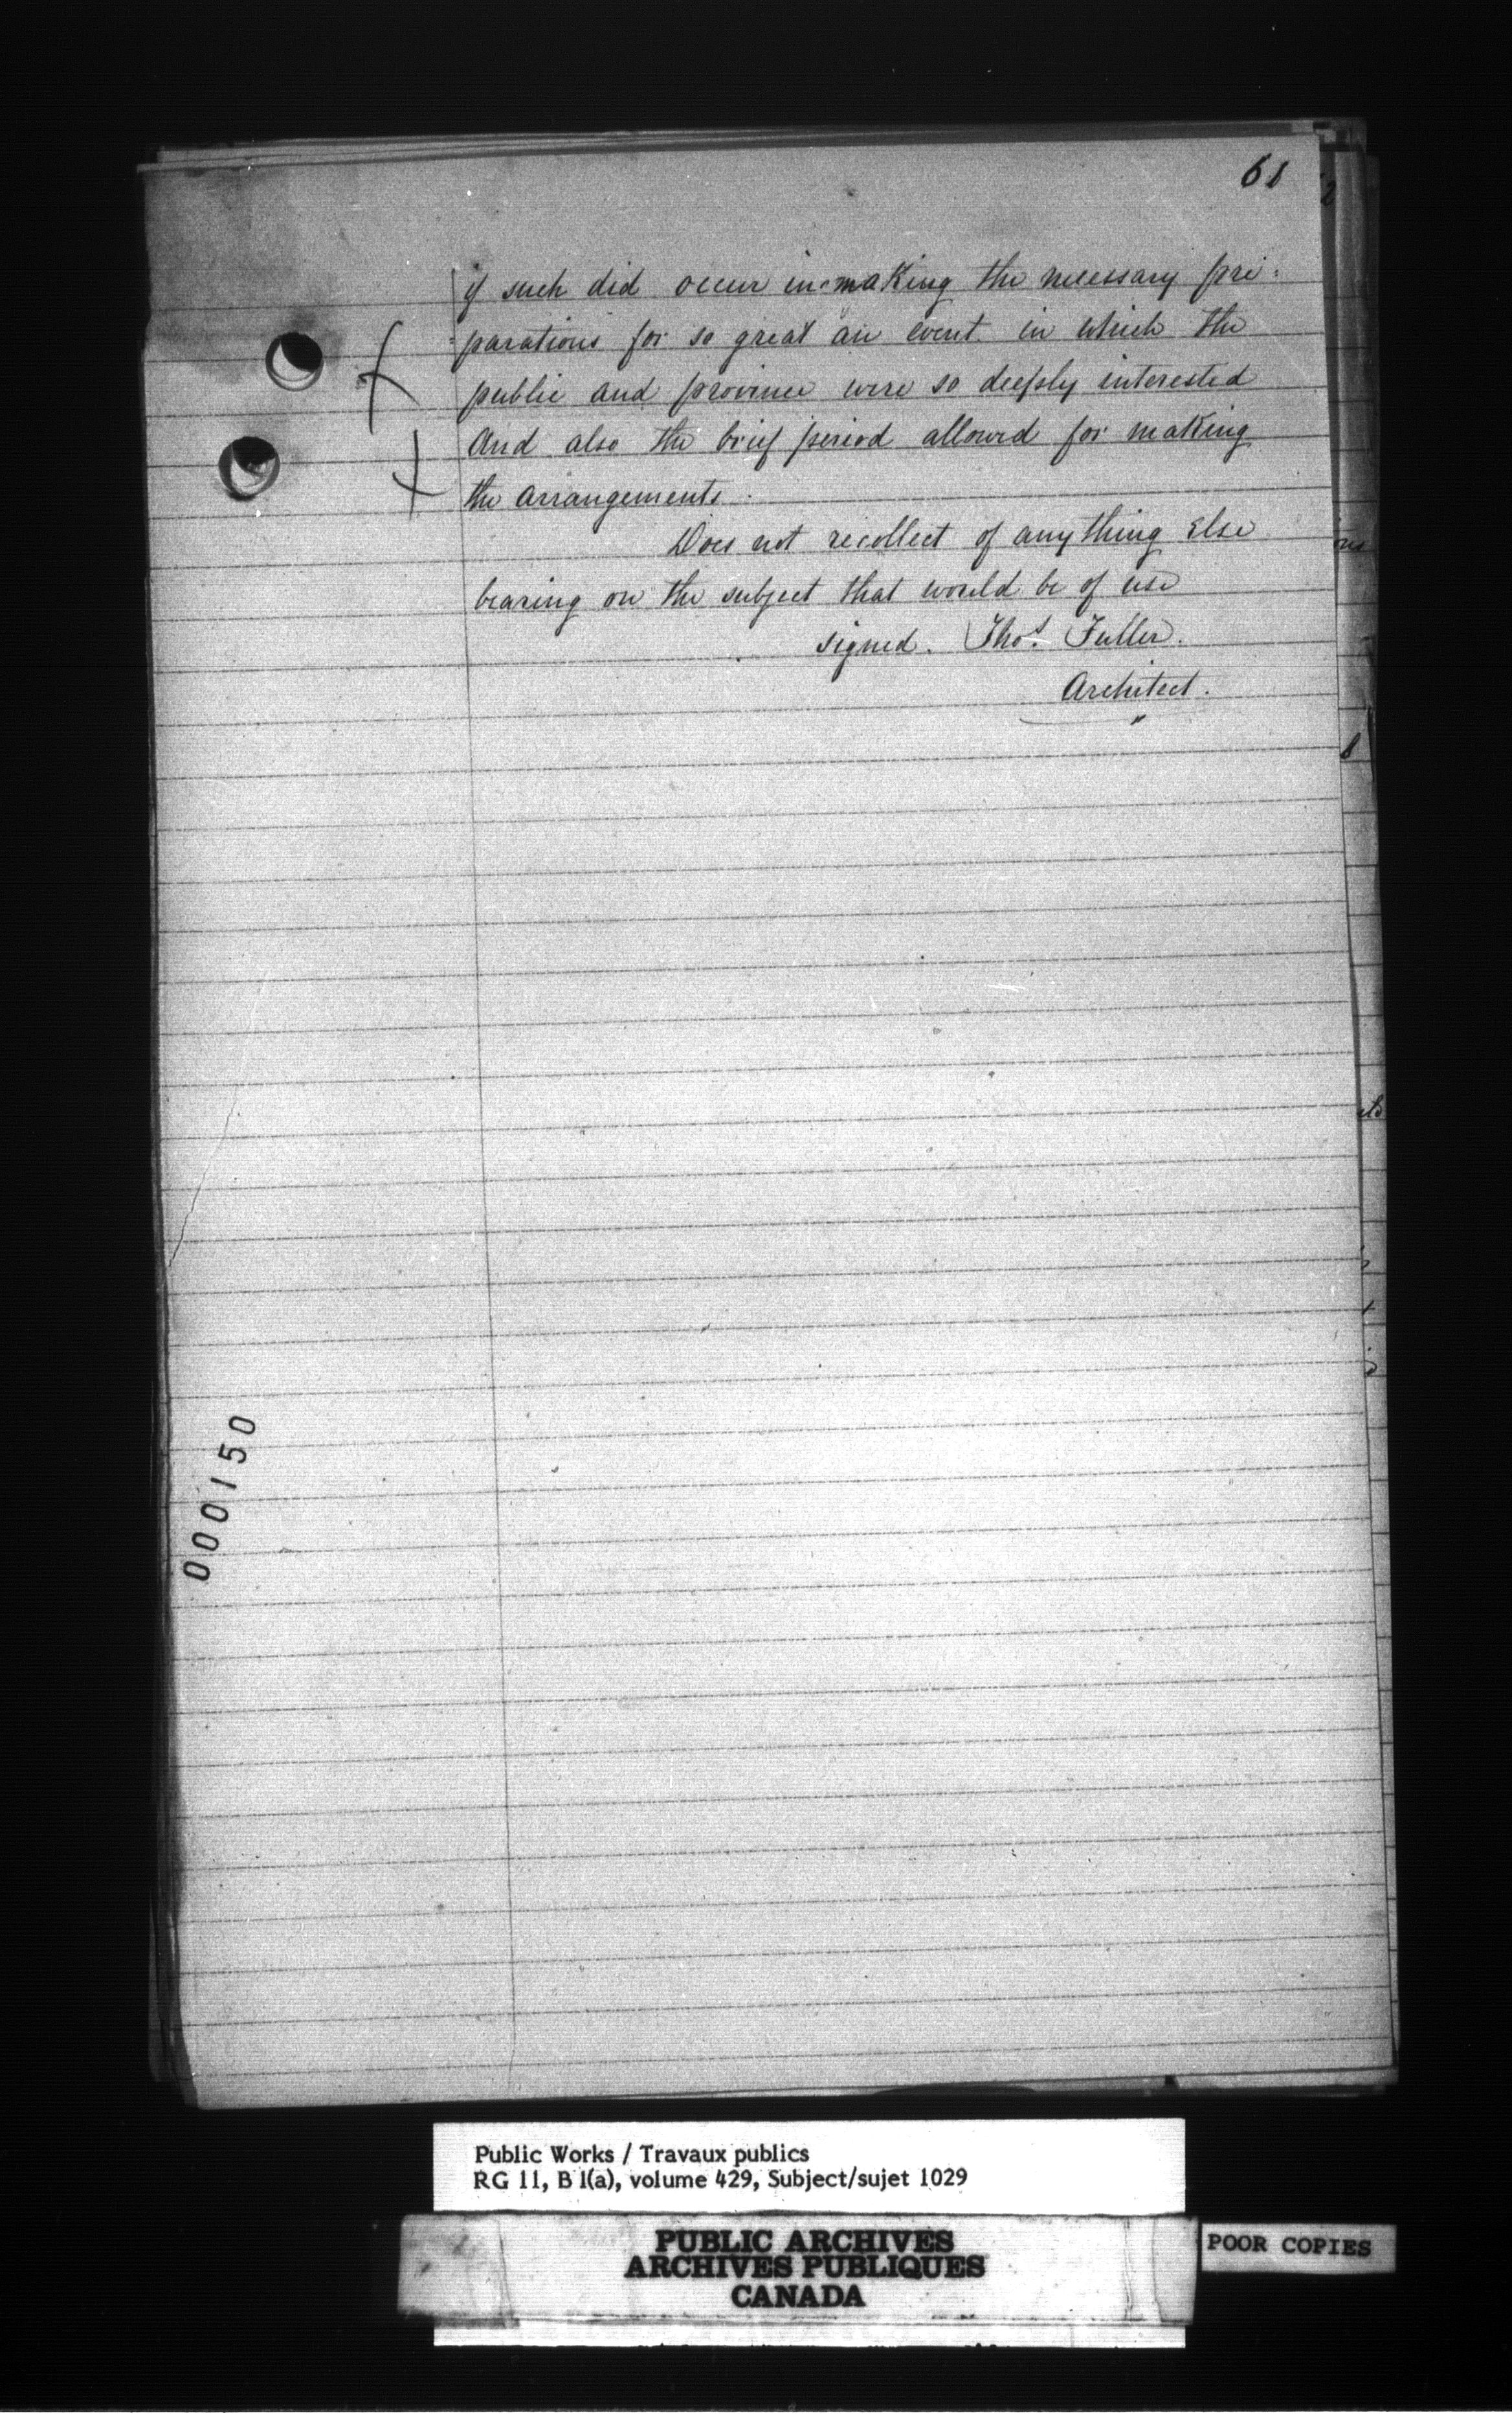 61
if such did occur in making the necessary pre=
=parations for so great an event in which the
public and province were so deeply interested
And also the brief period allowed for making
the arrangements.
Does not recollect of anything Else
bearing on the subject that would be of use
signed. Thos. Fuller.
Architect.
000150
Public Works / Travaux publics
RG 11, B 1(a), volume 429, Subject/sujet 1029
PUBLIC ARCHIVES
ARCHIVES PUBLIQUES
CANADA
POOR COPIES